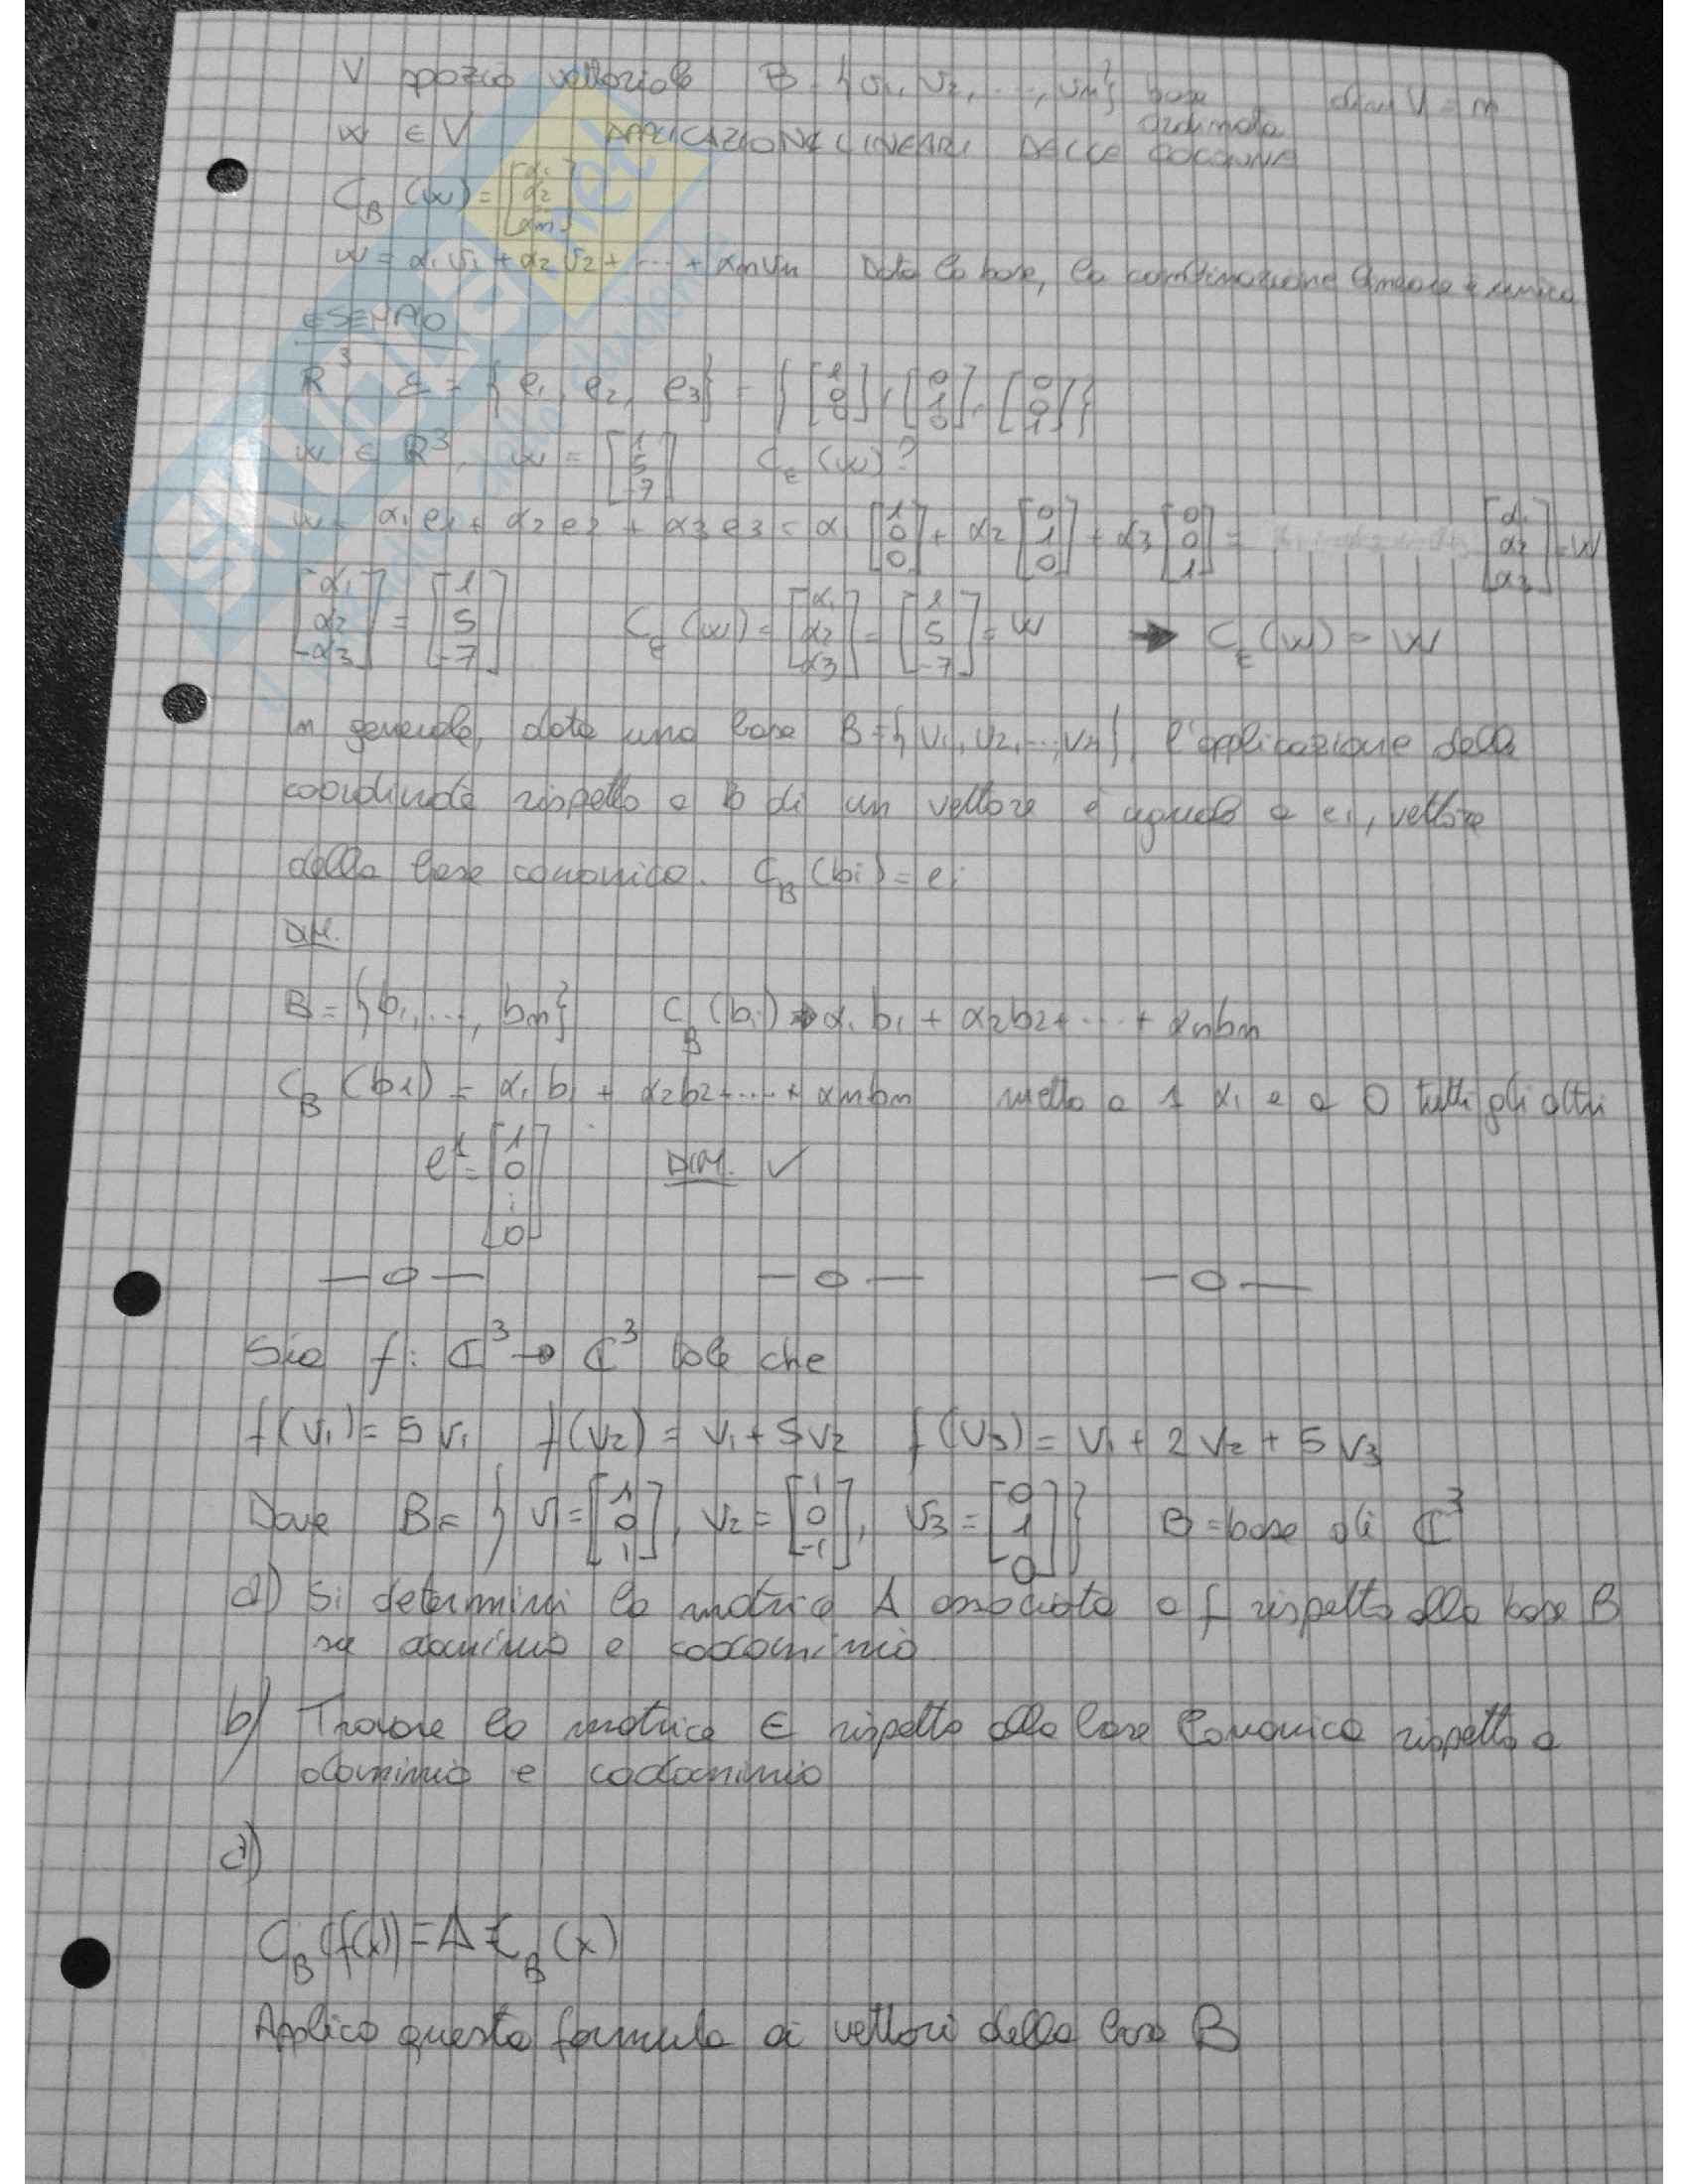 V spazio vettoriale B = {v1, v2, ..., vn} base ordinata dim V = n
w ∈ V APPLICAZIONI LINEARI DELLE COLONNE
C_B (w) = [α1 α2 ⋮ αn]
w = α1 v1 + α2 v2 + ... + αn vn Data la base, la combinazione lineare è unica
ESEMPIO
R³, ℰ = {e1, e2, e3} = {[1 0 0], [0 1 0], [0 0 1]}
w ∈ R³, w = [1 5 -7] C_E (w)?
w = α1 e1 + α2 e2 + α3 e3 = α1 [1 0 0] + α2 [0 1 0] + α3 [0 0 1] = [α1 α2 α3] = w
[α1 α2 α3] = [1 5 -7] C_E (w) = [α1 α2 α3] = [1 5 -7] = w → C_E (w) = w
In generale, data una base B = {v1, v2, ..., vn}, l'applicazione delle
coordinate rispetto a B di un vettore è uguale a ei, vettore
della base canonica. C_B (bi) = ei
DIM.
B = {b1, ..., bn} C_B (bi) → α1 b1 + α2 b2 + ... + αn bn
C_B (b1) = α1 b1 + α2 b2 + ... + αn bn metto a 1 α1 e a 0 tutti gli altri
e1 = [1 0 ⋮ 0] DIM. ✓
—o— —o— —o—
Sia f: ℂ³ → ℂ³ tale che
f(v1) = 5 v1 f(v2) = v1 + 5 v2 f(v3) = v1 + 2 v2 + 5 v3
Dove B = {v1 = [1 0 1], v2 = [1 0 -1], v3 = [0 1 0]} B = base di ℂ³
a) Si determini la matrice A associata a f rispetto alla base B
su dominio e codominio
b) Trovare la matrice E rispetto alla base canonica rispetto a
dominio e codominio
a)
C_B (f(x)) = A C_B (x)
Applico questa formula ai vettori della base B
SKUOLA.net